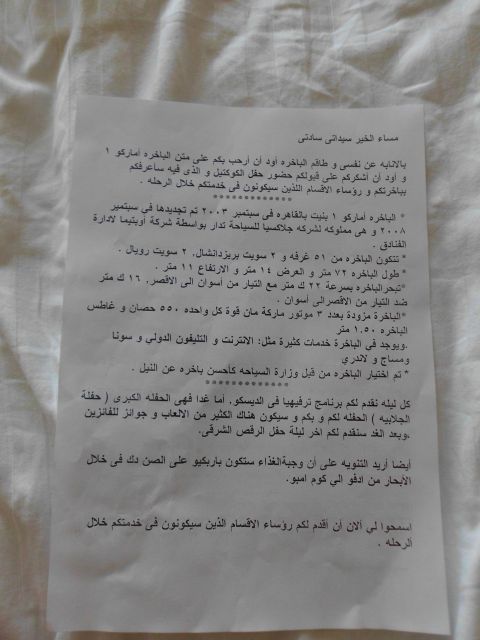 مساء الخير سيداتى سادتى
بالانابه عن نفسى و طاقم الباخره أود أن أرحب بكم على متن الباخره أماركو ١
و أود أن أشكركم على قبولكم حضور حفل الكوكتيل و الذى فيه سأعرفكم
بباخرتكم و رؤساء الاقسام اللذين سيكونون فى خدمتكم خلال الرحله .
* الباخره أماركو ١ بنيت بالقاهره فى سبتمبر ٢٠٠٣ تم تجديدها في سبتمبر
٢٠٠٨ و هى مملوكه لشركه جلاكسيا للسياحة تدار بواسطة شركة أوبتيما لادارة
الفنادق .
* تتكون الباخره من ٥١ غرفه و ٢ سويت بريزدانشال, ٢ سويت رويال .
* طول الباخره ٧٢ متر و العرض ١٤ متر و الارتفاع ١١ متر .
*تبحرالباخره بسرعة ٢٢ ك متر مع التيار من أسوان الى الاقصر, ١٦ ك متر
ضد التيار من الاقصرالى أسوان .
*الباخرة مزودة بعدد ٣ موتور ماركة مان قوة كل واحده ٥٥٠ حصان و غاطس
الباخره ١.٥٠ متر
.ويوجد في الباخرة خدمات كثيرة مثل: الانترنت و التليفون الدولي و سونا
ومساج و لاندري
* تم اختيار الباخره من قبل وزارة السياحه كأحسن باخره عن النيل .
كل ليله نقدم لكم برنامج ترفيهيا فى الديسكو, أما غدا فهى الحفله الكبرى ( حفلة
الجلابيه ) الحفله لكم و بكم و سيكون هناك الكثير من الالعاب و جوائز للفائزين
.وبعد الغد سنقدم لكم اخر ليلة حفل الرقص الشرقى.
أيضا أريد التنويه على أن وجبةالغذاء ستكون باربكيو على الصن دك فى خلال
الأبحار من ادفو الي كوم امبو.
اسمحوا لي ألان أن أقدم لكم رؤساء الاقسام الذين سيكونون فى خدمتكم خلال
الرحله .